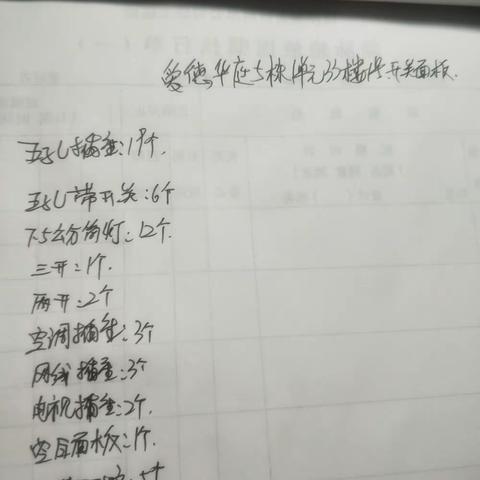 爱德华庭5栋1单元33楼1号开关面板.
五孔插座:19个.
五孔带开关:6个
7.5公分筒灯:12个.
三开:1个.
两开:2个
空调插座:3个
网线插座:3个
电视插座:2个.
空白面板:1个.